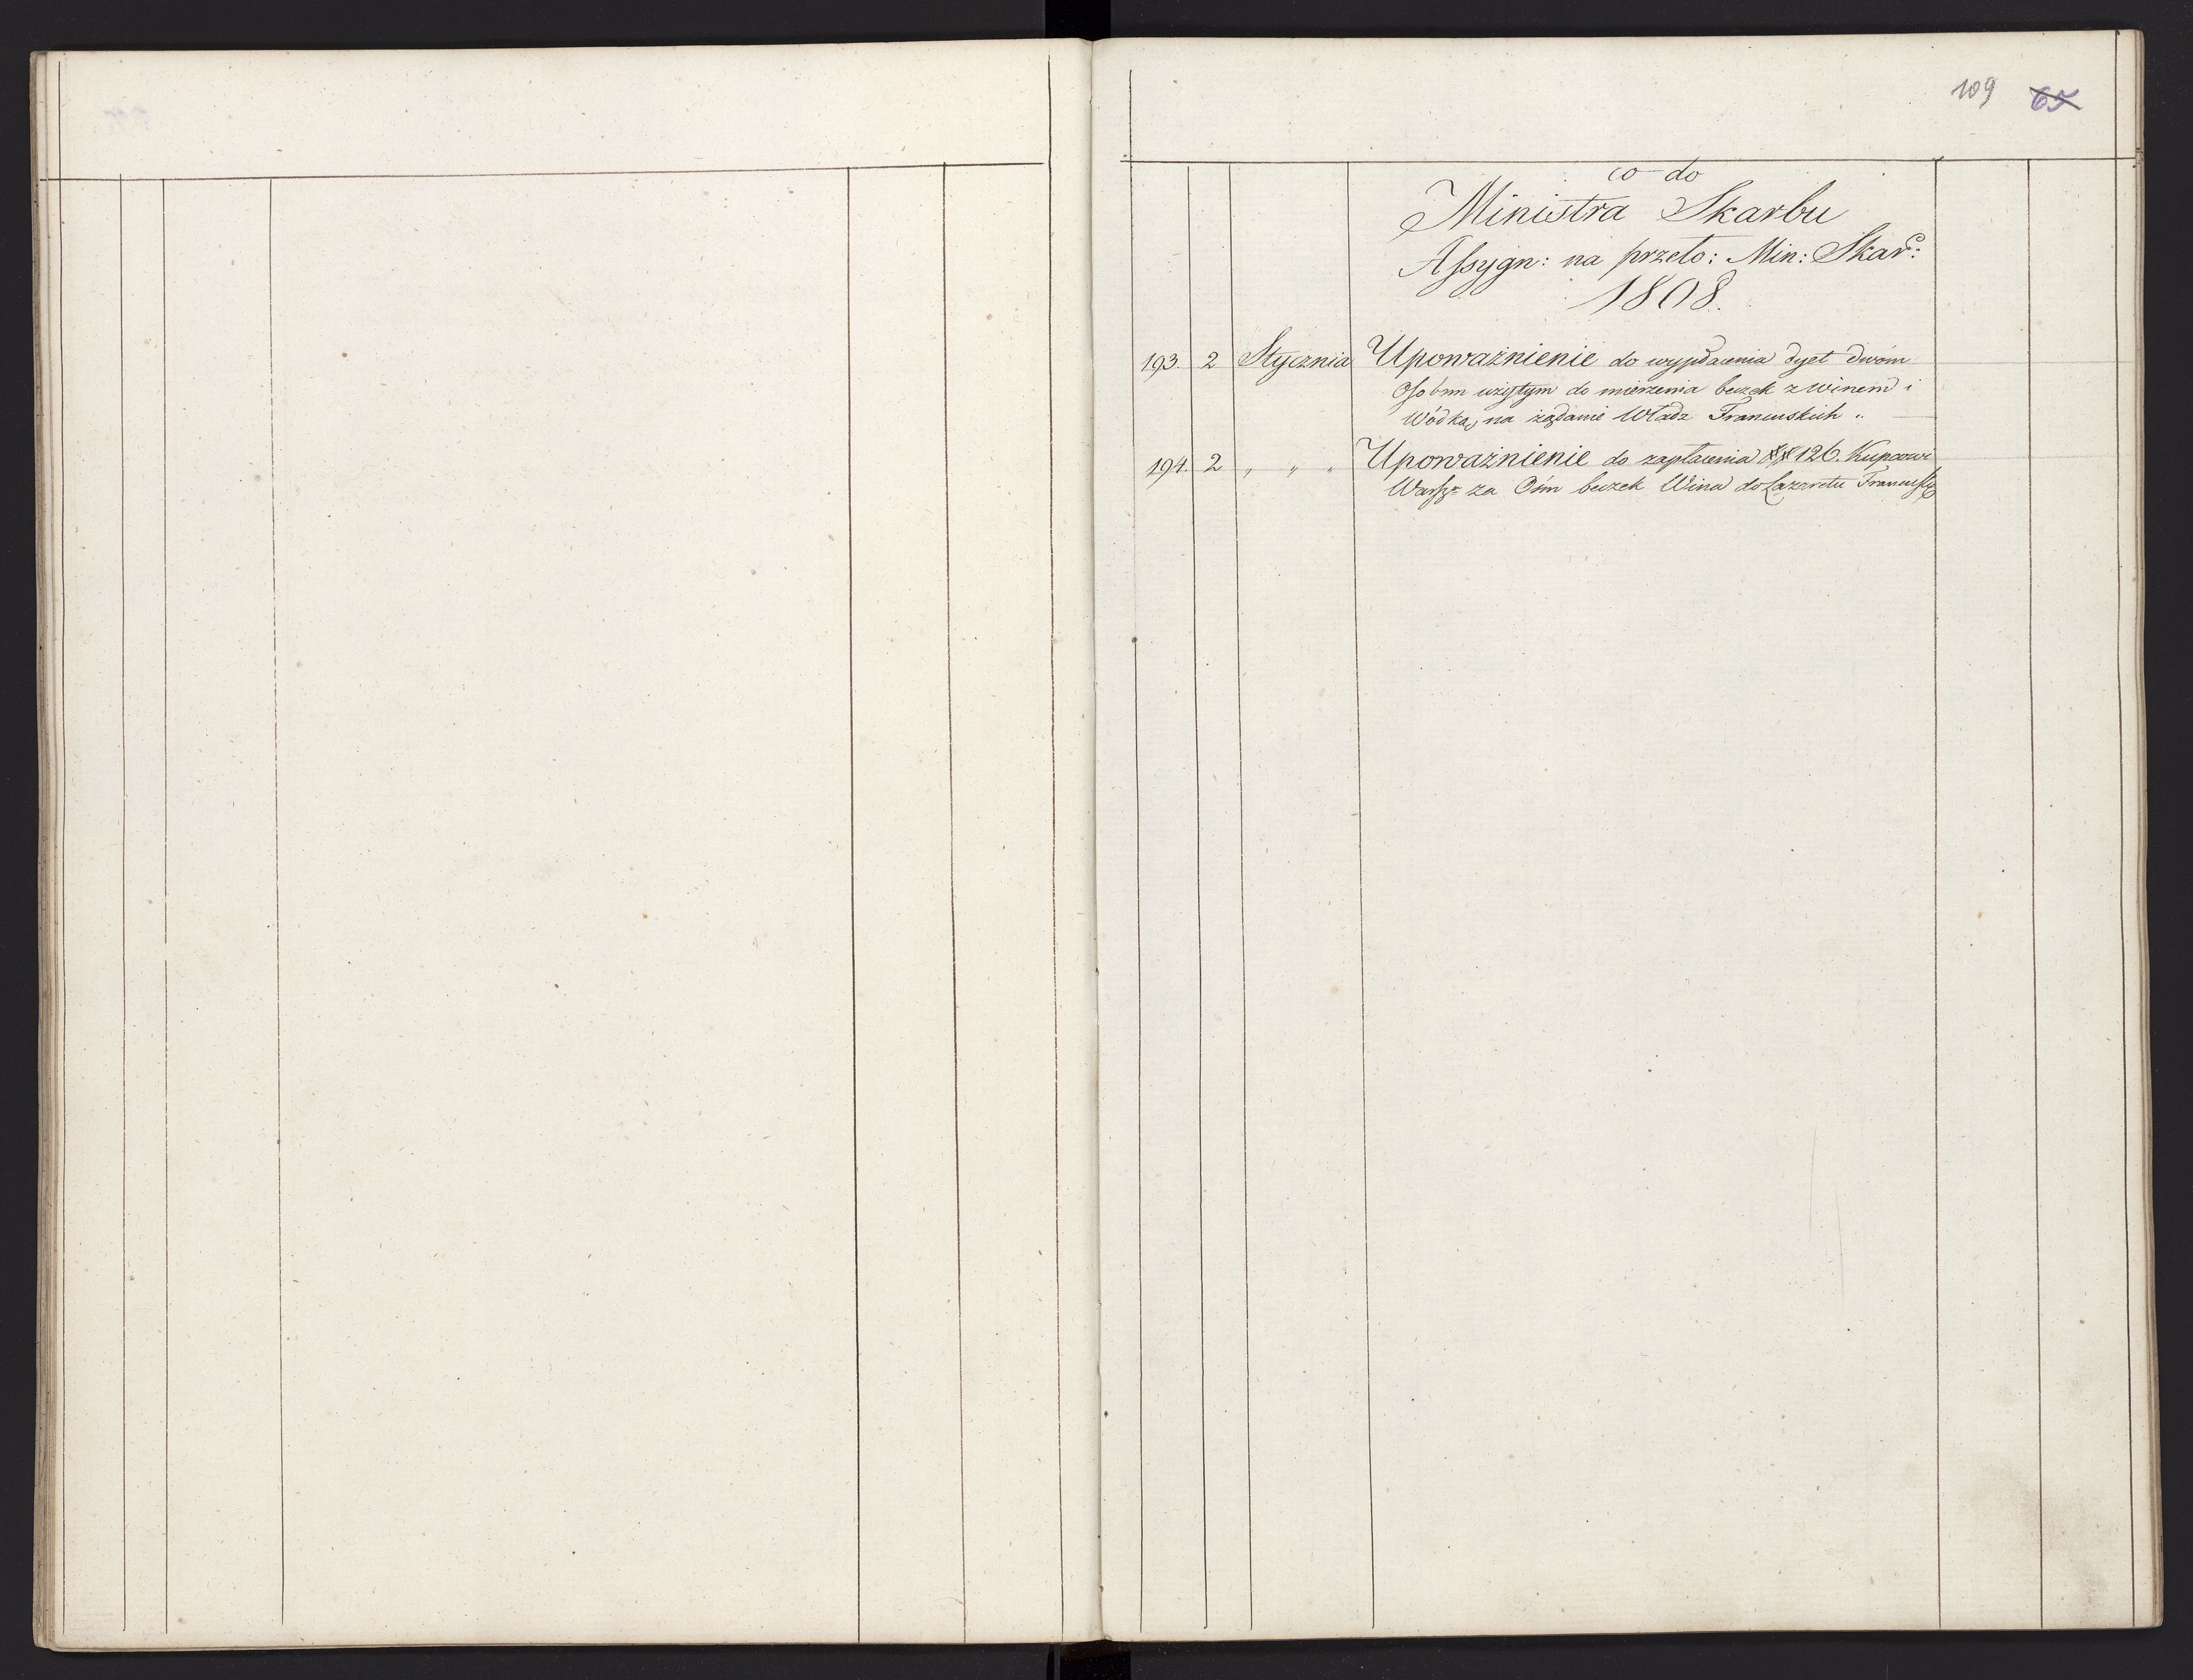 109 65
co do
Ministra Skarbu
Assygn: na przeło: Min: Skar:
1808.
193. 2 Stycznia Upoważnienie do wypłacenia dyet dwóm
Osobm użytym do mierzenia beczek z winem i
Wódką, na żądanie Władz Francuskich „
194. 2 „ „ „ Upoważnienie do zapłacenia 126. Kupcowi
Warszr za Ośm beczek Wina do Lazaretu Francusk